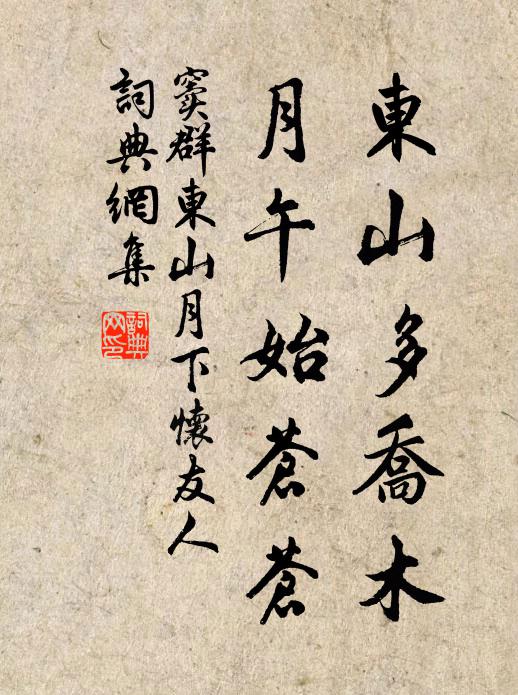 東山多喬木
月午始蒼蒼
竇群東山月下懷友人
詞典網集
詞典
网印